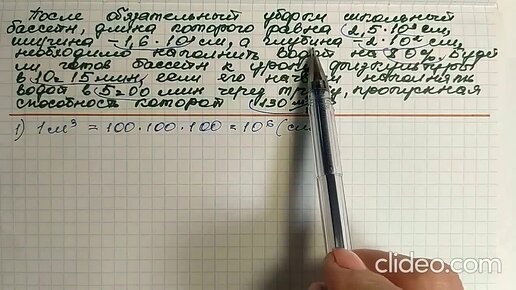 После обязательной уборки школьный
бассейн, длина которого равна 2,5·10³ см,
ширина – 1,6·10³ см, а глубина – 2·10² см,
необходимо наполнить водой на 80%. Будет
ли готов бассейн к уроку физкультуры
в 10ч 15 мин, если его начали наполнять
водой в 5ч 00 мин через трубу, пропускная
способность которой 130 м
1) 1 м³ = 100·100·100 = 10⁶ (см
clideo.com